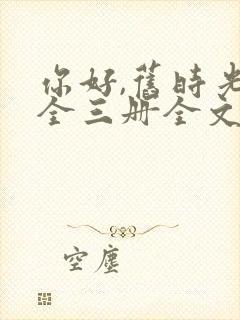 你好,舊時光
全三册全文
空塵